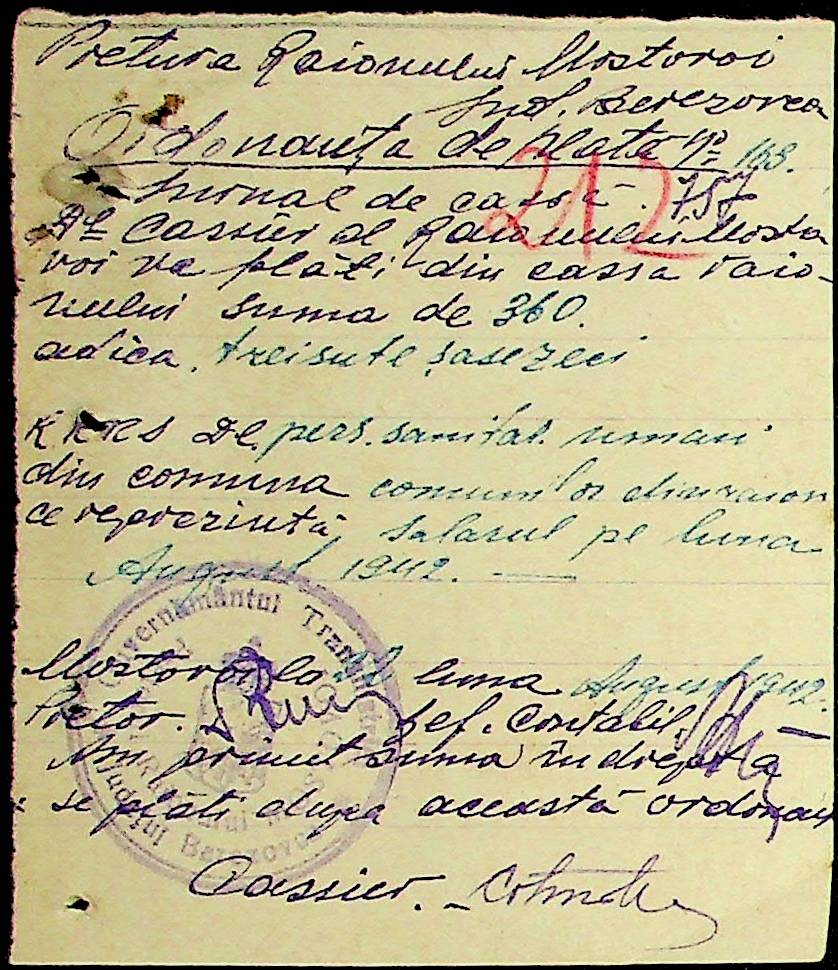 Pretura Raionului Mostovoi
Jud. Berezovca
Ordonanța de plata No 168.
212
Jurnal de cassă. 757
Dl Cassier al Raionului Mosto
voi va plăti din cassa raio-
nului suma de 360.
adica. treisute șasezeci
Dl. pers. sanitar. uman
din comuna comunilor din raion
ce reprezintă salarul pe luna
August 1942. —
Mostovoi la luna August 1942.
Pretor. Șef. Contabil.
Am primit suma îndrepta
se plăti dupa această ordonan
Cassier.
Guvernământul Transnistriei
Județul Berezovca